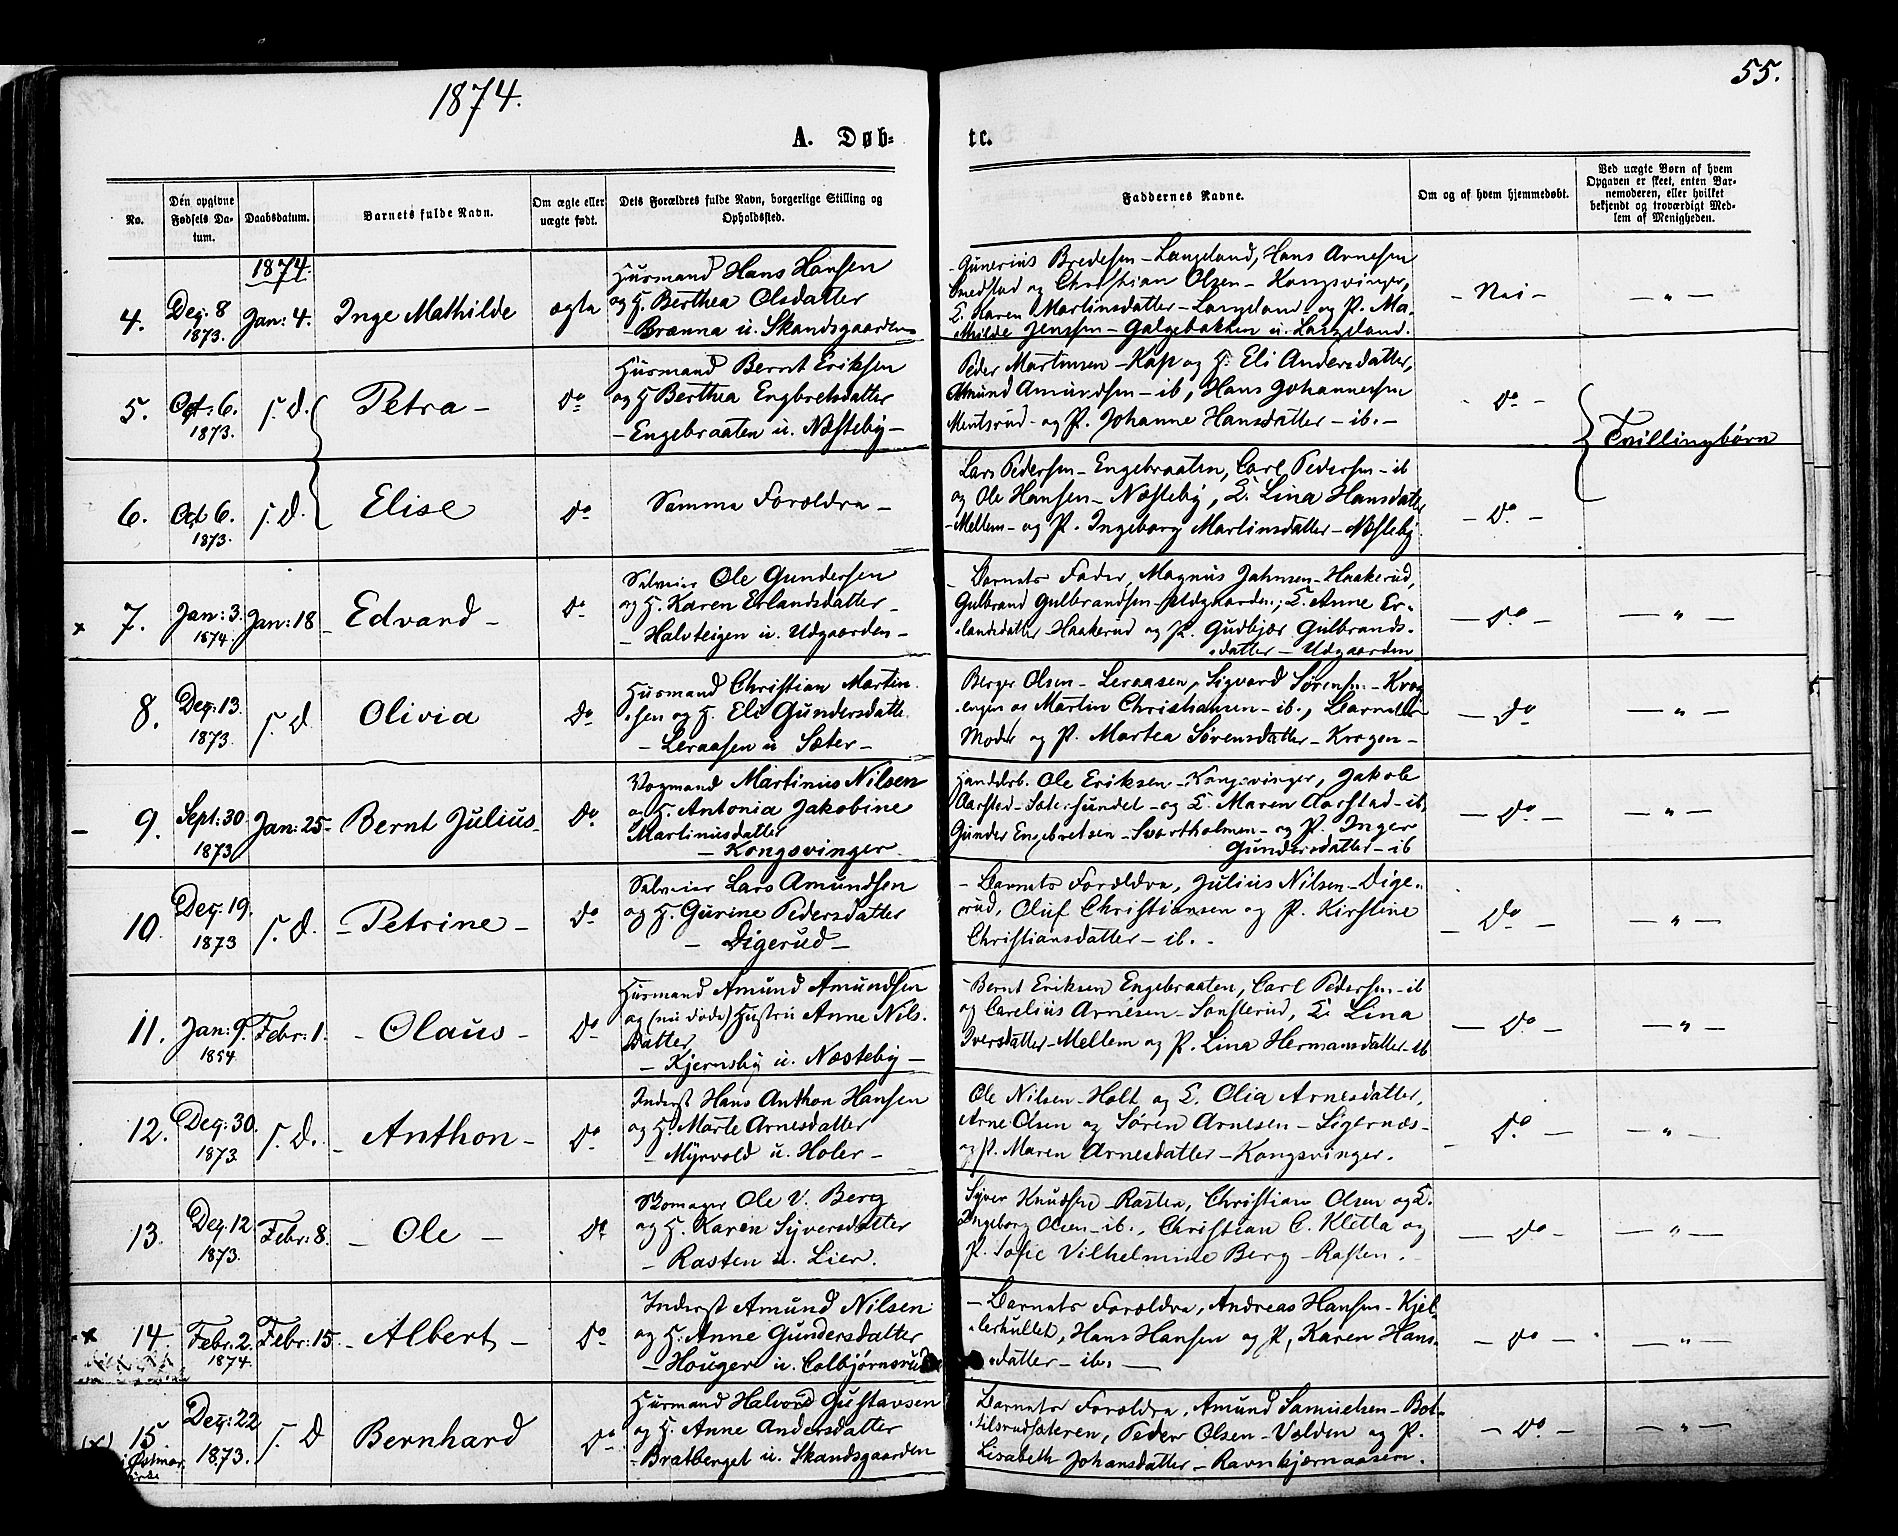 1874.
55.
A. Døb=
te.
No.
Den opgivne Fødsels Datum.
Daabsdatum.
Barnets fulde Navn.
Om ægte eller uægte født.
Dets Forældres fulde Navn, borgerlige Stilling og Opholdssted.
Faddernes Navne.
Om og af hvem hjemmedøbt.
Ved uægte Børn af hvem Opgaven er skeet, enten Barnemoderen, eller hvilket bekjendt og troværdigt Medlem af Menigheden.
1874.
4.
Dec: 8
1873.
Jan: 4.
Inge Mathilde
ægte
Husmand Hans Hansen
og H. Berthea Olsdatter
- Brænna u. Skandsgaarden -
- Gunerius Bredesen - Langeland, Hans Arnesen
og Christian Olsen - Kongsvinger,
Karen Martinsdatter - Langeland - og P. Ma-
thilde Jenssen - Galgebakken u. Langeland.
- Nei -
- " -
5.
Oct: 6.
1873.
s. D.
Petra -
Do
Husmand Bernt Eriksen
og H Berthea Engbretsdatter
- Engebraaten u. Næsteby -
Peder Martinsen - Kap og H. Eli Andersdatter,
Amund Amundsen - ib, Hans Johannesen
Mentsrud - og P. Johanne Hansdatter - ib. -
- Do -
Tvillingbørn
6.
Oct 6.
1873.
s. D.
Elise
Do
Samme Forældre -
Lars Pedersen - Engebraaten, Carl Pedersen - ib
og Ole Hansen - Næsteby, E. Lina Hansdatter
- Mellem - og P. Ingeborg Martinsdatter - Næsteby.
- Do -
x 7.
Jan: 3.
1874.
Jan: 18
- Edvard -
Do
Selveier Ole Gundersen
og H. Karen Erlandsdatter -
- Halvteigen u. Udgaarden -
- Barnets Fader, Magnus Jahnsen - Haakerud,
Gulbrand Gulbrandsen - Udgaarden; E. Anne Er-
landsdatter - Haakerud og P. Gudbjør Gulbrands-
datter - Udgaarden
- Do -
- " -
8.
Dec: 13.
1873.
s. D
Olivia
Do
Husmand Christian Martin-
sen og H. Eli Gundersdatte
- Leraasen u Sæter -
Berger Olsen - Leraasen, Sigvard Sørensen - Krog
engen og Martin Christiansen - ib., Barnets
Moder og P. Martea Sørensdatter - Krogen -
- Do
- " -
- 9.
Sept: 30.
1873
Jan: 25 -
Bernt Julius -
Do
Vogmand Martinus Nilsen
og H. Antonia Jakobine
Martinusdatter
- Kongsvinger.
Handelsb. Ole Eriksen - Kongsvinger, Jakob
Aarstad - Sætersundet - og E. Maren Aarstad - ib,
Gunder Engebretsen - Svartholmen - og P. Inger
Gundersdatter - ib
- Do -
- " -
10.
Dec: 19.
1873
s. D.
- Petrine -
Do
Selveier Lars Amundsen
og H. Gurine Pedersdatter
- Digerud -
- Barnets Forældre, Julius Nilsen - Dige-
rud, Oluf Christiansen og P. Kirstine
Christiansdatter - ib. -
- Do -
- " -
11.
Jan: 9.
1854.
Febr: 1.
- Olaus -
Do
Husmand Amund Amundsen
og (nu døde) Hustru Anne Nils-
datter
- Kjernsby u. Næsteby -
- Bernt Eriksen Engebraaten, Carl Pedersen - ib
og Carelius Arnesen - Sonsterud, E. Lina
Iversdatter - Mellem og P. Lina Hermansdatter - ib
- Do -
- " -
12.
Dec: 30.
1873.
s. D.
- Anthon -
Do
Inderst Hans Anthon Hansen
og H. Marte Arnesdatter
- Myrvold u. Holer -
Ole Nilsen - Holt og E. Olia Arnesdatter,
Arne Olsen og Søren Arnesen - Ligernæs -
og P. Maren Arnesdatter - Kongsvinger.
- Do -
- " -
13.
Dec: 12
1873.
Febr: 8.
- Ole -
Do
Bomager Ole V. Berg
og H. Karen Syversdatter
- Rasten u. Lier.
Syver Knudsen - Rasten, Christian Olsen og E.
Ingeborg Olsen - ib., Christian C. Kletta og
P. Sofie Vilhelmine Berg - Rasten.
- Do -
- " -
x 14
Febr: 2.
1874.
Febr: 15
- Albert -
Do
Inderst Amund Nilsen
og H. Anne Gundersdatter
- Houger u. Colbjørnsrud
- Barnets Forældre, Andreas Hansen - Kjel-
lerhullet, Hans Hansen og P. Karen Hans-
datter - ib. -
- Do -
- " -
(x) 15
Dec: 22
1873.
s. D
Bernhard
Do
Husmand Halvord Gustavsen
og H. Anne Andersdatter
- Bratberget u. Skandsgaarden
Barnets Forældre, Amund Samuelsen - Bot-
tilsrudsæteren, Peder Olsen - Volden og P.
Lisabeth Johansdatter - Ravnbjørnaasen.
- Do -
- " -